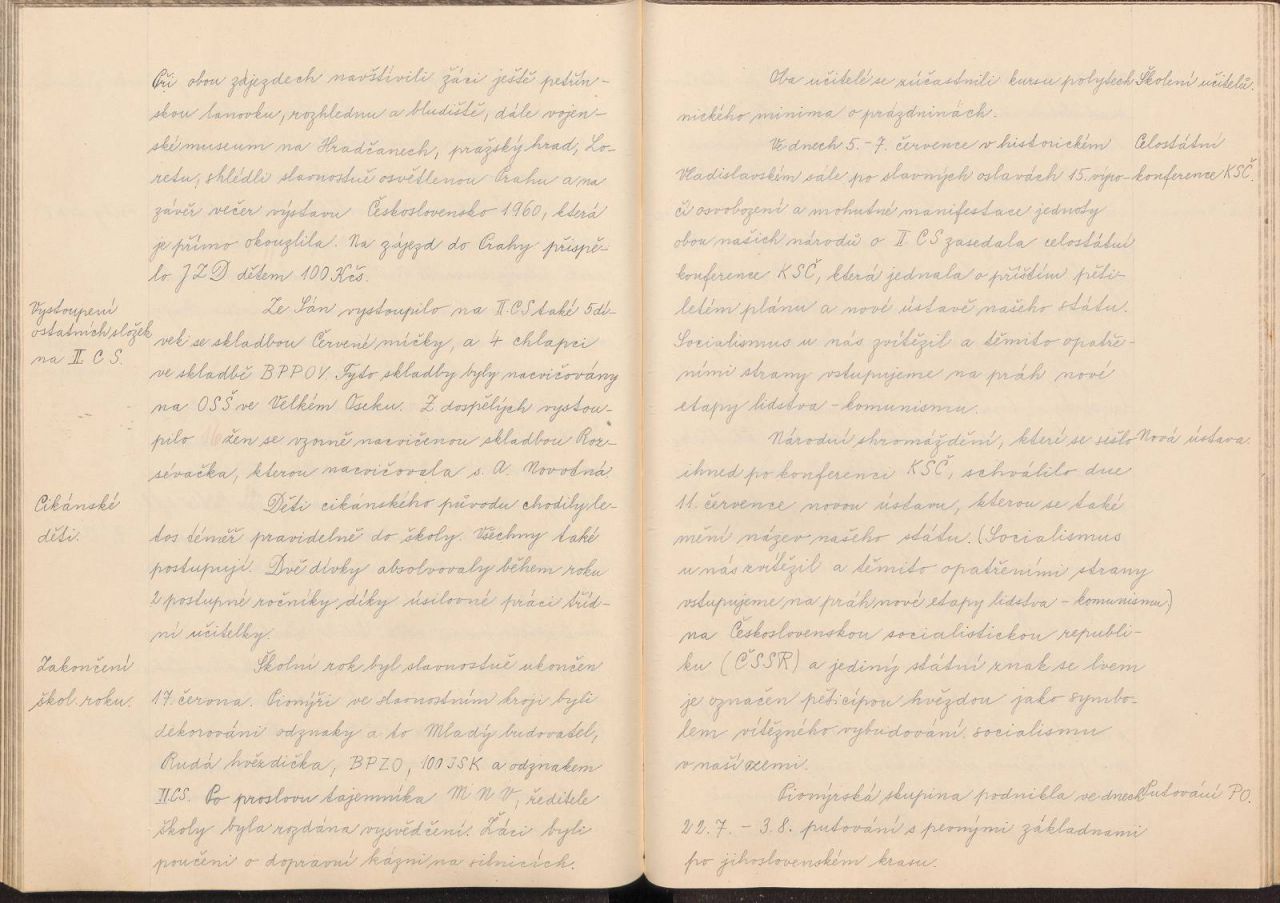 Při obou zájezdech navštívili žáci ještě petřín-
skou lanovku, rozhlednu a bludiště, dále vojen-
ské museum na Hradčanech, pražský hrad, Lo-
retu, shlédli slavnostně osvětlenou Prahu a na
závěr večer výstavu Československo 1960, která
je přímo okouzlila. Na zájezd do Prahy přispě-
lo JZD dětem 100 Kčs.
Vystoupení
ostatních složek
na II. C S.
Ze Sán vystoupilo na II. CS také 5 dí-
vek se skladbou Červené míčky, a 4 chlapci
ve skladbě BPPOV. Tyto skladby byly nacvičovány
na OSŠ ve Velkém Oseku. Z dospělých vystou-
pilo 16 žen se vzorně nacvičenou skladbou Roz-
sévačka, kterou nacvičovala s. A. Novotná.
Cikánské
děti.
Děti cikánského původu chodily le-
tos téměř pravidelně do školy. Všechny také
postupují. Dvě dívky absolvovaly během roku
2 postupné ročníky díky úsilovné práci tříd-
ní učitelky.
Zakončení
škol. roku.
Školní rok byl slavnostně ukončen
17. června. Pionýři ve slavnostním kroji byli
dekorováni odznaky a to Mladý budovatel,
Rudá hvězdička, BPZO, 100 JSK a odznakem
II.CS. Po proslovu tajemníka M N V, ředitele
školy byla rozdána vysvědčení. Žáci byli
poučeni o dopravní kázni na silnicích.
Oba učitelé se zúčastnili kursu polytech-
nického minima o prázdninách.
Školení učitelů.
Ve dnech 5. - 7. července v historickém
Vladislavském sále po slavných oslavách 15. výro-
čí osvobození a mohutné manifestace jednoty
obou našich národů o II. CS zasedala celostátní
konference KSČ, která jednala o příštím pěti-
letém plánu a nové ústavě našeho státu.
Socialismus u nás zvítězil a těmito opatře-
ními strany vstupujeme na práh nové
etapy lidstva - komunismu.
Celostátní
konference KSČ.
Národní shromáždění, které se sešlo
ihned po konferenci KSČ, schválilo dne
11. července novou ústavu, kterou se také
mění název našeho státu. (Socialismus
u nás zvítězil a těmito opatřeními strany
vstupujeme na práh nové etapy lidstva - komunismu)
na Československou socialistickou republi-
ku (ČSSR) a jediný státní znak se lvem
je označen pěticípou hvězdou jako symbo-
lem vítězného vybudování socialismu
v naší zemi.
Nová ústava.
Pionýrská skupina podnikla ve dnech
22. 7. - 3. 8. putování s pevnými základnami
po jihoslovenském krasu.
Putování PO.